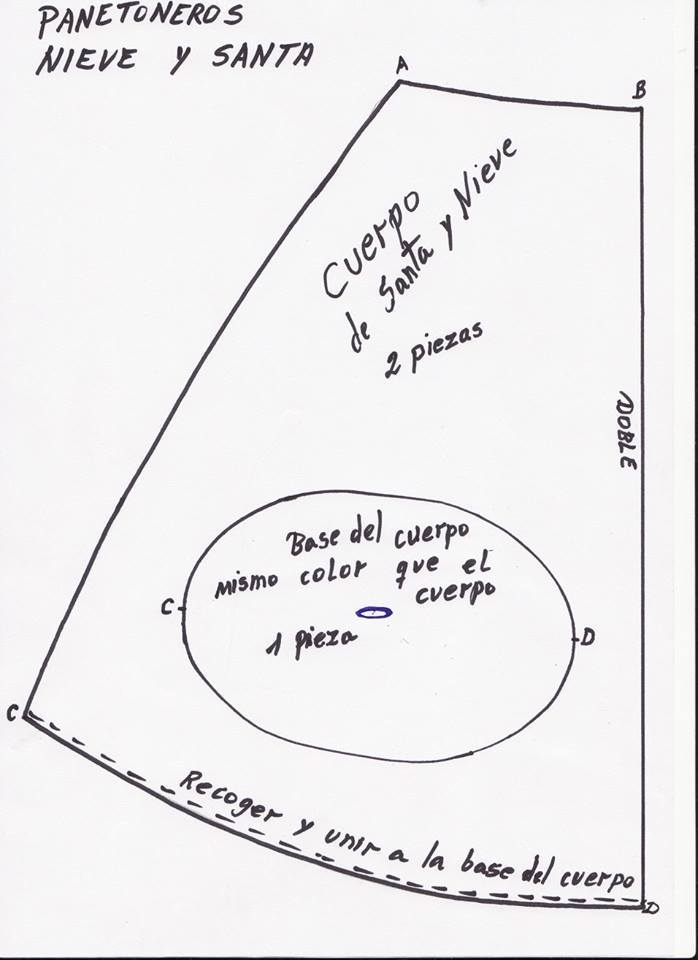 PANETONEROS
NIEVE Y SANTA
A
B
Cuerpo
de Santa y Nieve
2 piezas
DOBLE
Base del cuerpo
mismo color que el
cuerpo
1 pieza
C
D
C
Recoger y unir a la base del cuerpo
D